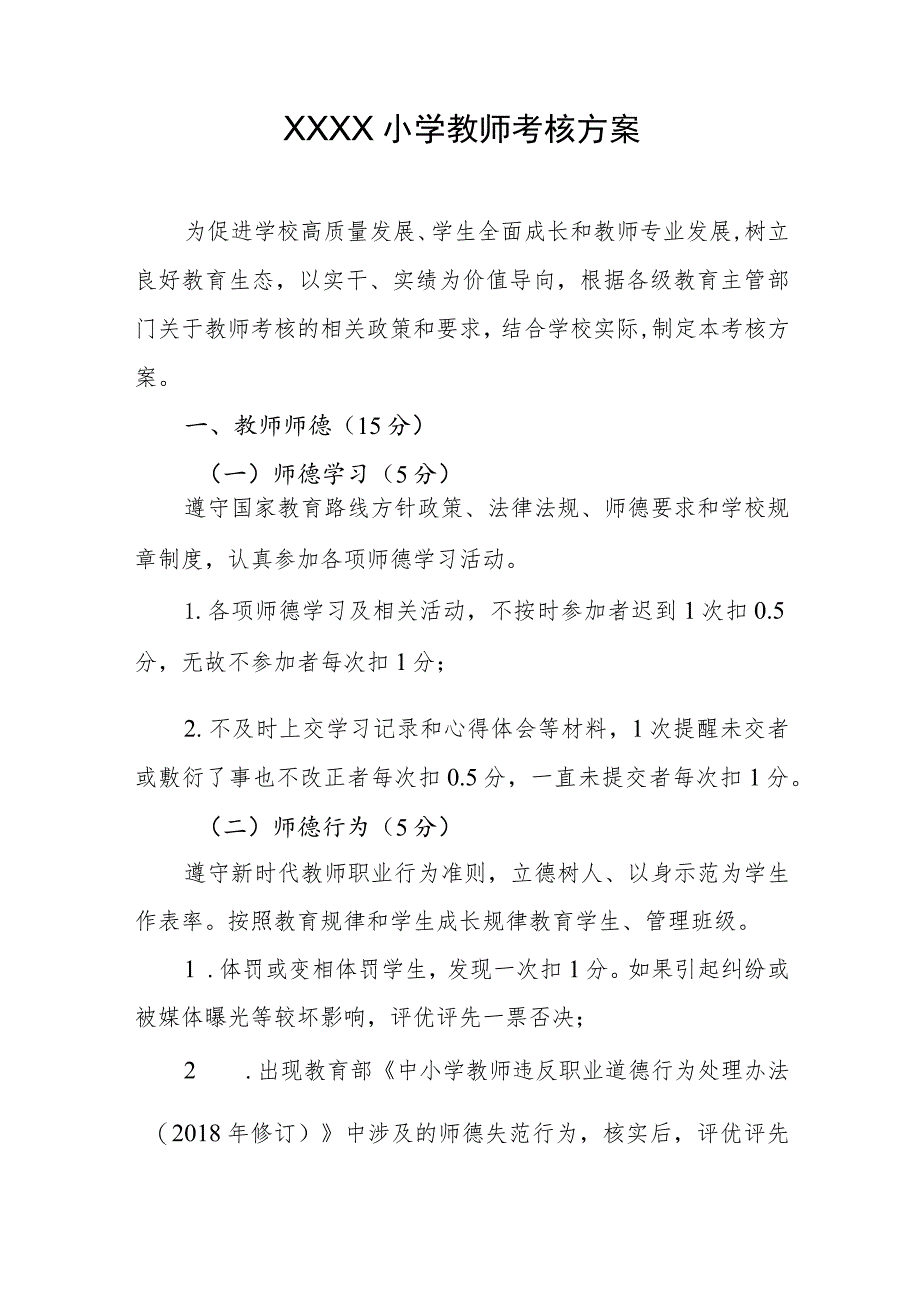 XXXX 小学教师考核方案
为促进学校高质量发展、学生全面成长和教师专业发展,树立
良好教育生态，以实干、实绩为价值导向，根据各级教育主管部
门关于教师考核的相关政策和要求，结合学校实际,制定本考核方
案。
一、教师师德（15 分）
（一）师德学习（5 分）
遵守国家教育路线方针政策、法律法规、师德要求和学校规
章制度，认真参加各项师德学习活动。
1. 各项师德学习及相关活动，不按时参加者迟到 1 次扣 0.5
分，无故不参加者每次扣 1 分；
2. 不及时上交学习记录和心得体会等材料，1 次提醒未交者
或敷衍了事也不改正者每次扣 0.5 分，一直未提交者每次扣 1 分。
（二）师德行为（5 分）
遵守新时代教师职业行为准则，立德树人、以身示范为学生
作表率。按照教育规律和学生成长规律教育学生、管理班级。
1 .体罚或变相体罚学生，发现一次扣 1 分。如果引起纠纷或
被媒体曝光等较坏影响，评优评先一票否决；
2 .出现教育部《中小学教师违反职业道德行为处理办法
（2018 年修订）》中涉及的师德失范行为，核实后，评优评先